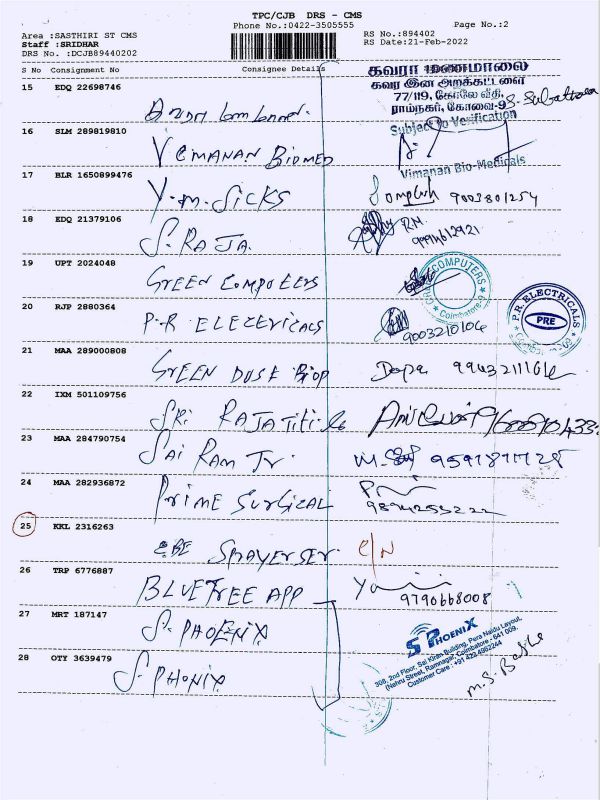 TPC/CJB DRS - CMS
Phone No.:0422-3505555
Page No.:2
Area :SASTHIRI ST CMS
Staff :SRIDHAR
DRS No. :DCJB89440202
RS No.:894402
RS Date:21-Feb-2022
S No Consignment No Consignee Details
15 EDQ 22698746
கவரா மணமாலை
கவர இன அறக்கட்டளை
77/119, கோலே வீதி,
ராம்நகர், கோவை-9
16 SLM 289819810
VIMANAN BIOMED
Subject to Verification
Vimanan Bio-Medicals
17 BLR 1650899476
Y.M. SICKS
9003801254
18 EDQ 21379106
S. RAJA.
19 UPT 2024048
GREEN COMPUTERS
COMPUTERS
Coimbatore-9
20 RJP 2880364
P.R ELECTRICALS
9003210106
P.R. ELECTRICALS
PRE
21 MAA 289000808
GREEN DUST
22 IXM 501109756
SRI RAJA
23 MAA 284790754
SAI RAM Tr.
24 MAA 282936872
PRIME SURGICAL
25 KKL 2316263
C/N
26 TRP 6776887
BLUETREE APP
9790668008
27 MRT 187147
S. PHOENIX
28 OTY 3639479
S. PHONIX
S PHOENIX
308, 2nd Floor, Sai Kiran Building, Pera Naidu Layout,
(Nehru Street, Ramnagar, Coimbatore - 641 009.
Customer Care : +91 422 4982244